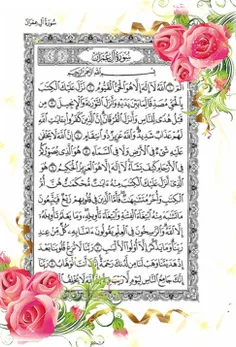 سورة آل عمران
سُورَةُ آلِ عِمْرَانَ
بِسْمِ اللَّهِ الرَّحْمَٰنِ الرَّحِيمِ
الٓمٓ ١ اللَّهُ لَآ إِلَٰهَ إِلَّا هُوَ الْحَيُّ الْقَيُّومُ ٢ نَزَّلَ عَلَيْكَ الْكِتَٰبَ
بِالْحَقِّ مُصَدِّقًا لِّمَا بَيْنَ يَدَيْهِ وَأَنزَلَ التَّوْرَىٰةَ وَالْإِنجِيلَ ٣ مِن
قَبْلُ هُدًى لِّلنَّاسِ وَأَنزَلَ الْفُرْقَانَ إِنَّ الَّذِينَ كَفَرُوا بِـَٔايَٰتِ اللَّهِ
لَهُمْ عَذَابٌ شَدِيدٌ وَاللَّهُ عَزِيزٌ ذُو انتِقَامٍ ٤ إِنَّ اللَّهَ لَا يَخْفَىٰ
عَلَيْهِ شَيْءٌ فِي الْأَرْضِ وَلَا فِي السَّمَآءِ ٥ هُوَ الَّذِي يُصَوِّرُكُمْ
فِي الْأَرْحَامِ كَيْفَ يَشَآءُ لَآ إِلَٰهَ إِلَّا هُوَ الْعَزِيزُ الْحَكِيمُ ٦ هُوَ
الَّذِيٓ أَنزَلَ عَلَيْكَ الْكِتَٰبَ مِنْهُ ءَايَٰتٌ مُّحْكَمَٰتٌ هُنَّ أُمُّ
الْكِتَٰبِ وَأُخَرُ مُتَشَٰبِهَٰتٌ فَأَمَّا الَّذِينَ فِي قُلُوبِهِمْ زَيْغٌ فَيَتَّبِعُونَ
مَا تَشَٰبَهَ مِنْهُ ابْتِغَآءَ الْفِتْنَةِ وَابْتِغَآءَ تَأْوِيلِهِ وَمَا يَعْلَمُ تَأْوِيلَهُٓ
إِلَّا اللَّهُ وَالرَّٰسِخُونَ فِي الْعِلْمِ يَقُولُونَ ءَامَنَّا بِهِ كُلٌّ مِّنْ عِندِ
رَبِّنَا وَمَا يَذَّكَّرُ إِلَّآ أُولُوا الْأَلْبَٰبِ ٧ رَبَّنَا لَا تُزِغْ قُلُوبَنَا بَعْدَ
إِذْ هَدَيْتَنَا وَهَبْ لَنَا مِن لَّدُنكَ رَحْمَةً إِنَّكَ أَنتَ الْوَهَّابُ ٨ رَبَّنَآ
إِنَّكَ جَامِعُ النَّاسِ لِيَوْمٍ لَّا رَيْبَ فِيهِ إِنَّ اللَّهَ لَا يُخْلِفُ الْمِيعَادَ ٩